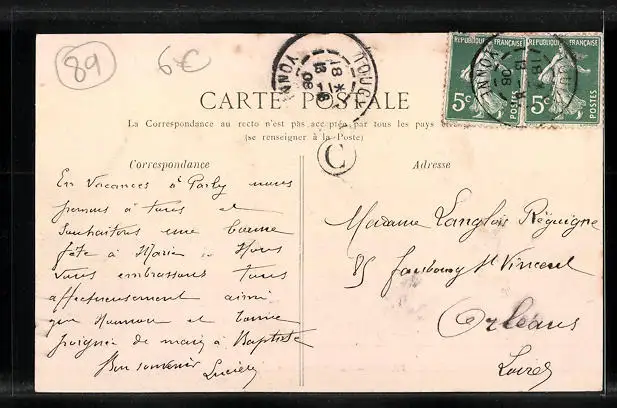 89
6€
TOUCY
YONNE
18
8
08
REPUBLIQUE FRANÇAISE
5c
POSTES
REPUBLIQUE FRANÇAISE
5c
POSTES
CARTE POSTALE
La Correspondance au recto n'est pas acceptée par tous les pays
(se renseigner à la Poste)
C
Correspondance
En Vacances à Parly nous
pensons à tous et
souhaitons une bonne
fête à Marie. Nous
vous embrassons tous
affectueusement ainsi
que et bonne
poignée de main à Baptiste
Bon souvenir Lucien
Adresse
Madame Langlois Réguigne
85 faubourg St Vincent
Orléans
Loiret